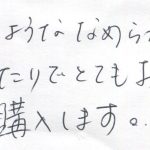 ようななめら
たりでとてもよ
購入します。